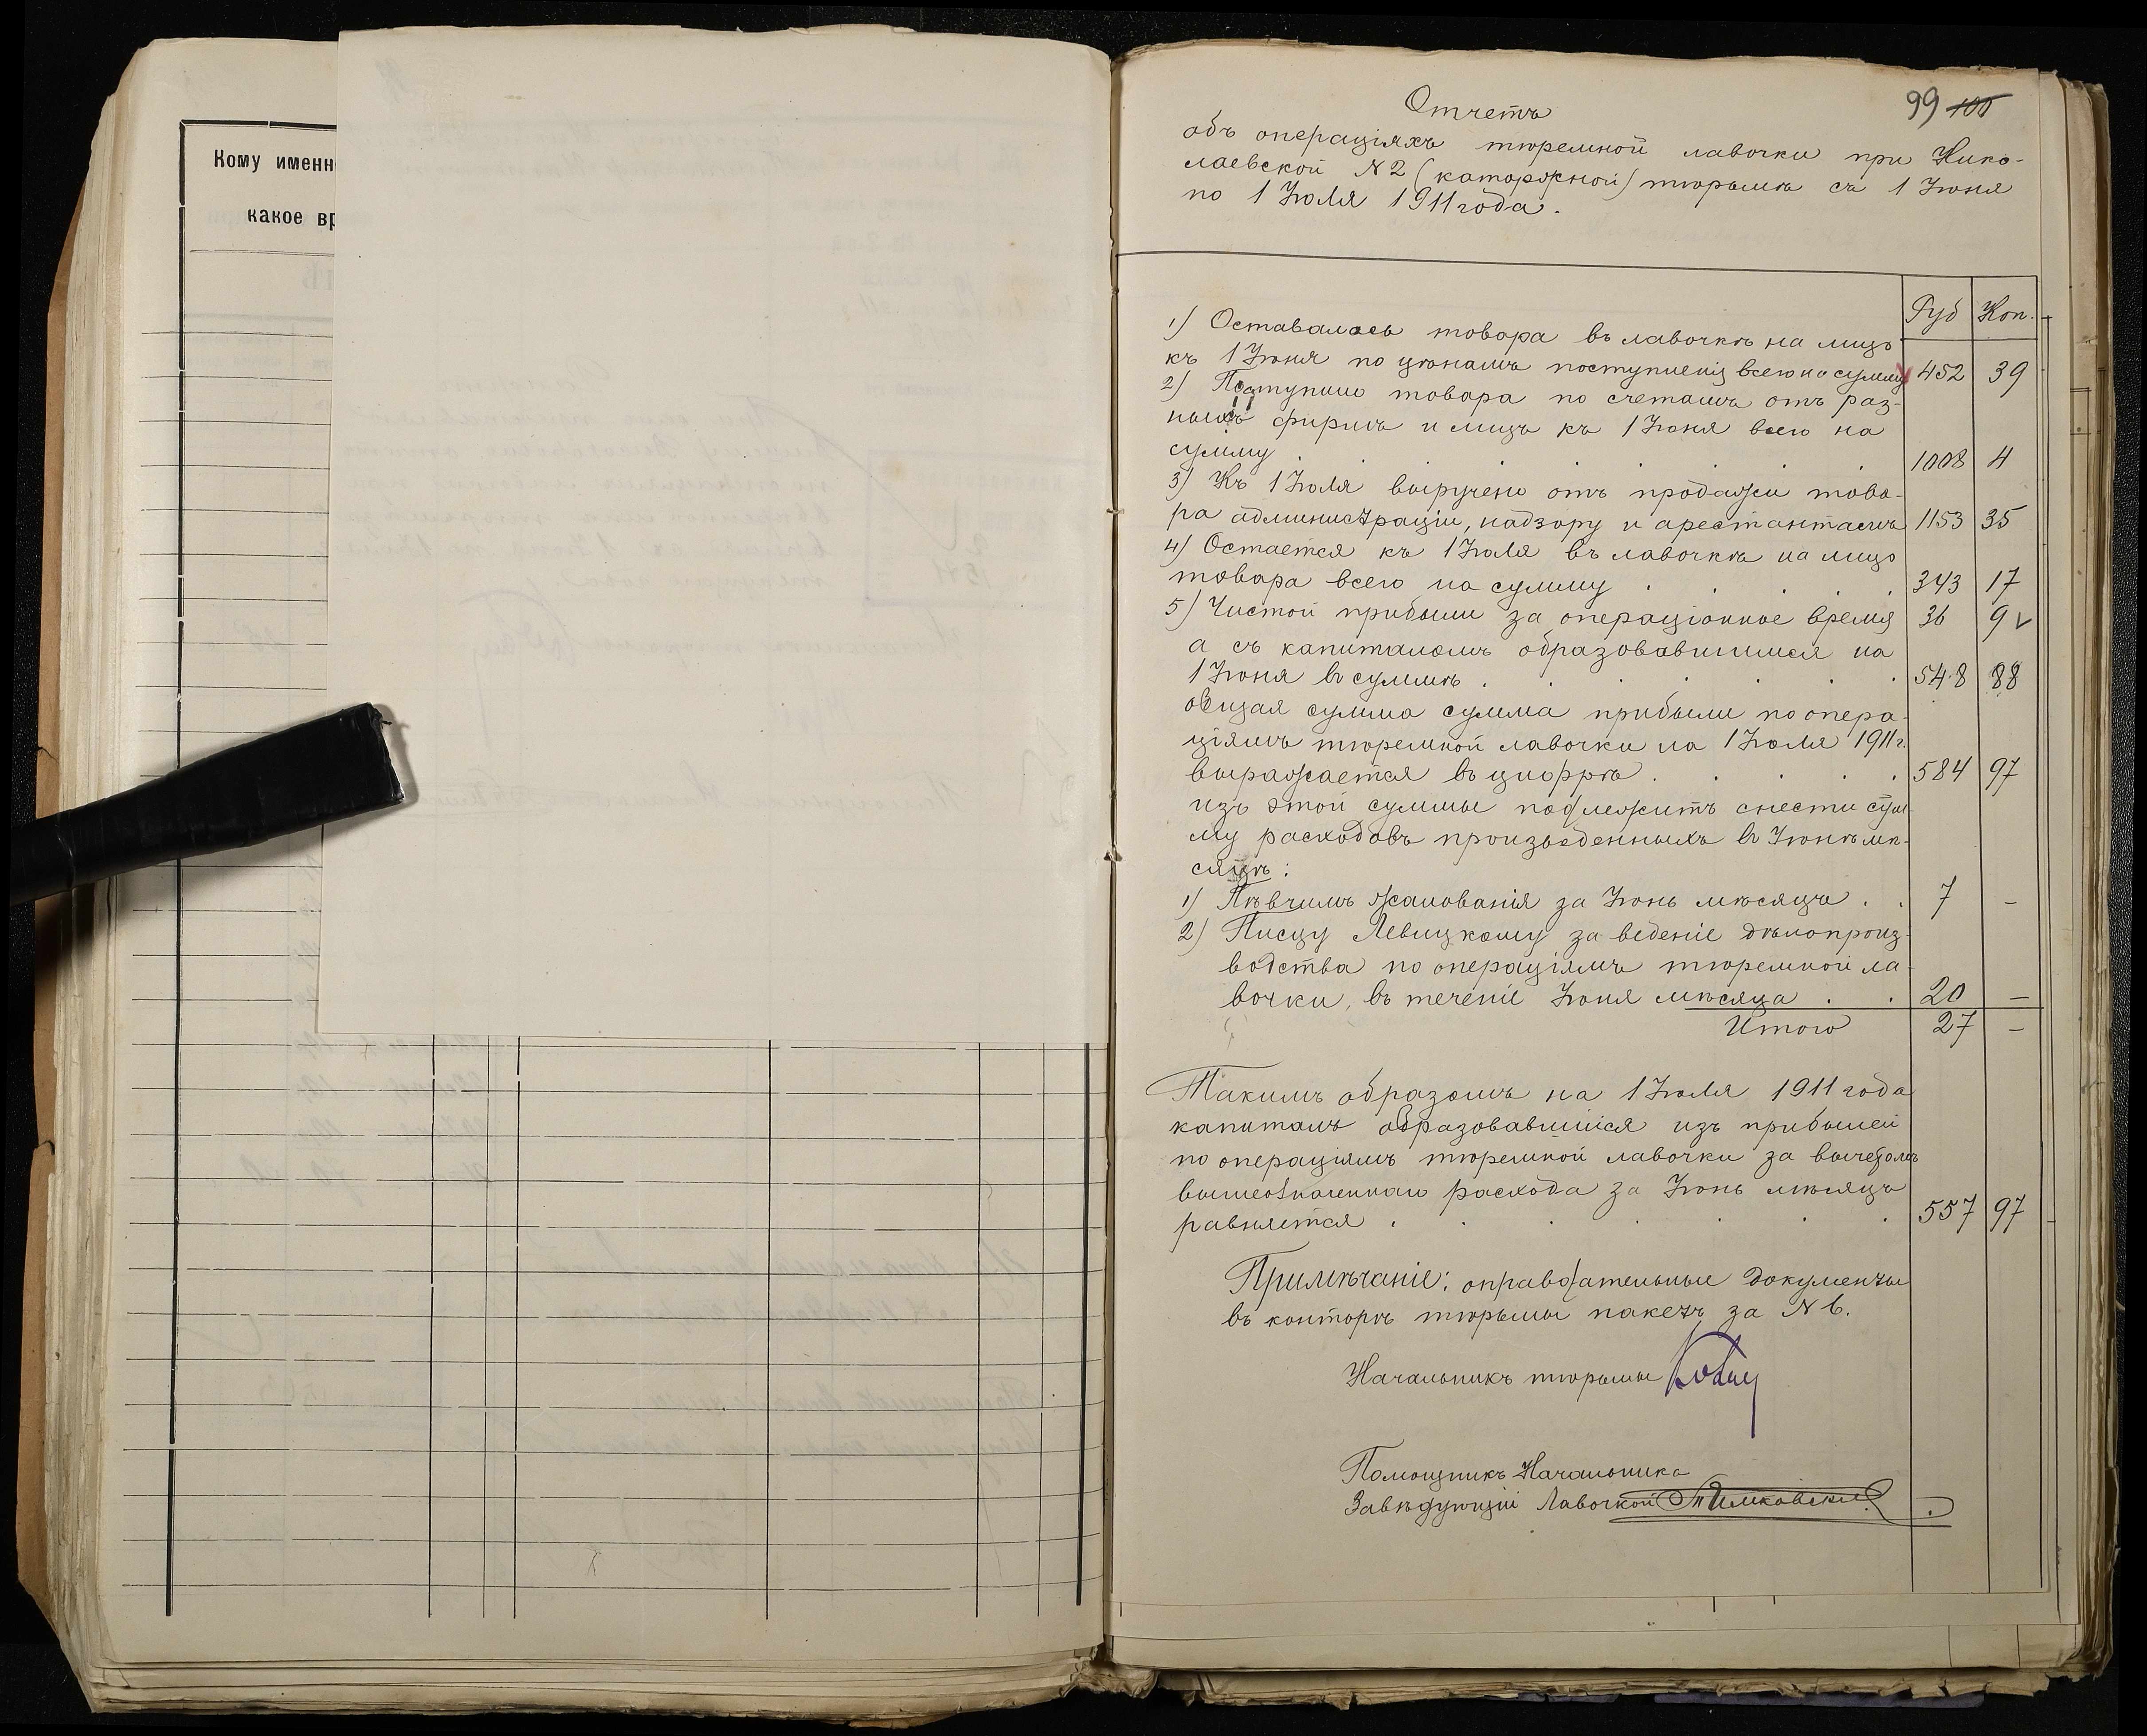 Кому именн
какое вр
99 100
Отчетъ
объ операціяхъ тюремной лавочки при Нико-
лаевской № 2 (каторжной) тюрьмѣ съ 1 Іюня
по 1 Іюля 1911 года.
Руб Коп.
1) Оставалось товара въ лавочкѣ на лицо
къ 1 Іюня по цѣнамъ поступленія всего на сумму 452 39
2) Поступило товара по счетамъ отъ раз-
ныхъ фирмъ и лицъ къ 1 Іюня всего на
сумму . . . . . . . 1008 4
3) Къ 1 Іюля выручено отъ продажи това-
ра администраціи, надзору и арестантамъ 1153 35
4) Остается къ 1 Іюля въ лавочкѣ на лицо
товара всего на сумму . . . 343 17
5) Чистой прибыли за операціонное время 36 9 v
а съ капиталомъ образовавшимся на
1 Іюня въ суммѣ . . . . . . . 548 88
общая сумма сумма прибыли по опера-
ціямъ тюремной лавочки на 1 Іюля 1911 г.
выражается въ цифрѣ . . . . . 584 97
изъ этой суммы подлежитъ снести сум-
му расходовъ произведенныхъ въ Іюнѣ мѣ-
сяцѣ:
1) Пѣвчимъ жалованія за Іюнь мѣсяцъ . . 7 –
2) Писцу Левицкому за веденіе дѣлопроиз-
водства по операціямъ тюремной ла-
вочки, въ теченіе Іюня мѣсяца . . 20 –
Итого 27 –
Такимъ образомъ на 1 Іюля 1911 года
капиталъ образовавшійся изъ прибылей
по операціямъ тюремной лавочки за вычетомъ
вышеозначеннаго расхода за Іюнь мѣсяцъ
равняется . . . . . . . 557 97
Примѣчаніе: оправдательные документы
въ конторѣ тюрьмы пакетъ за № 6.
Начальникъ тюрьмы
Помощникъ Начальника
Завѣдующій Лавочкой